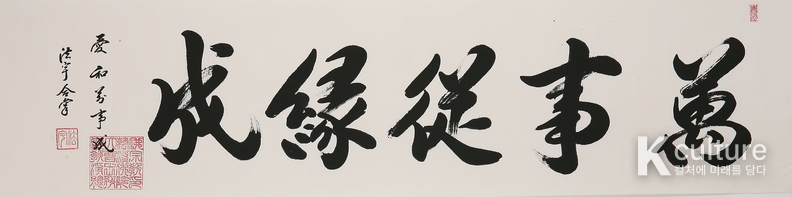 萬事從緣成
愛和萬事成
法宇合掌
K culture
컬처에 미래를 담다